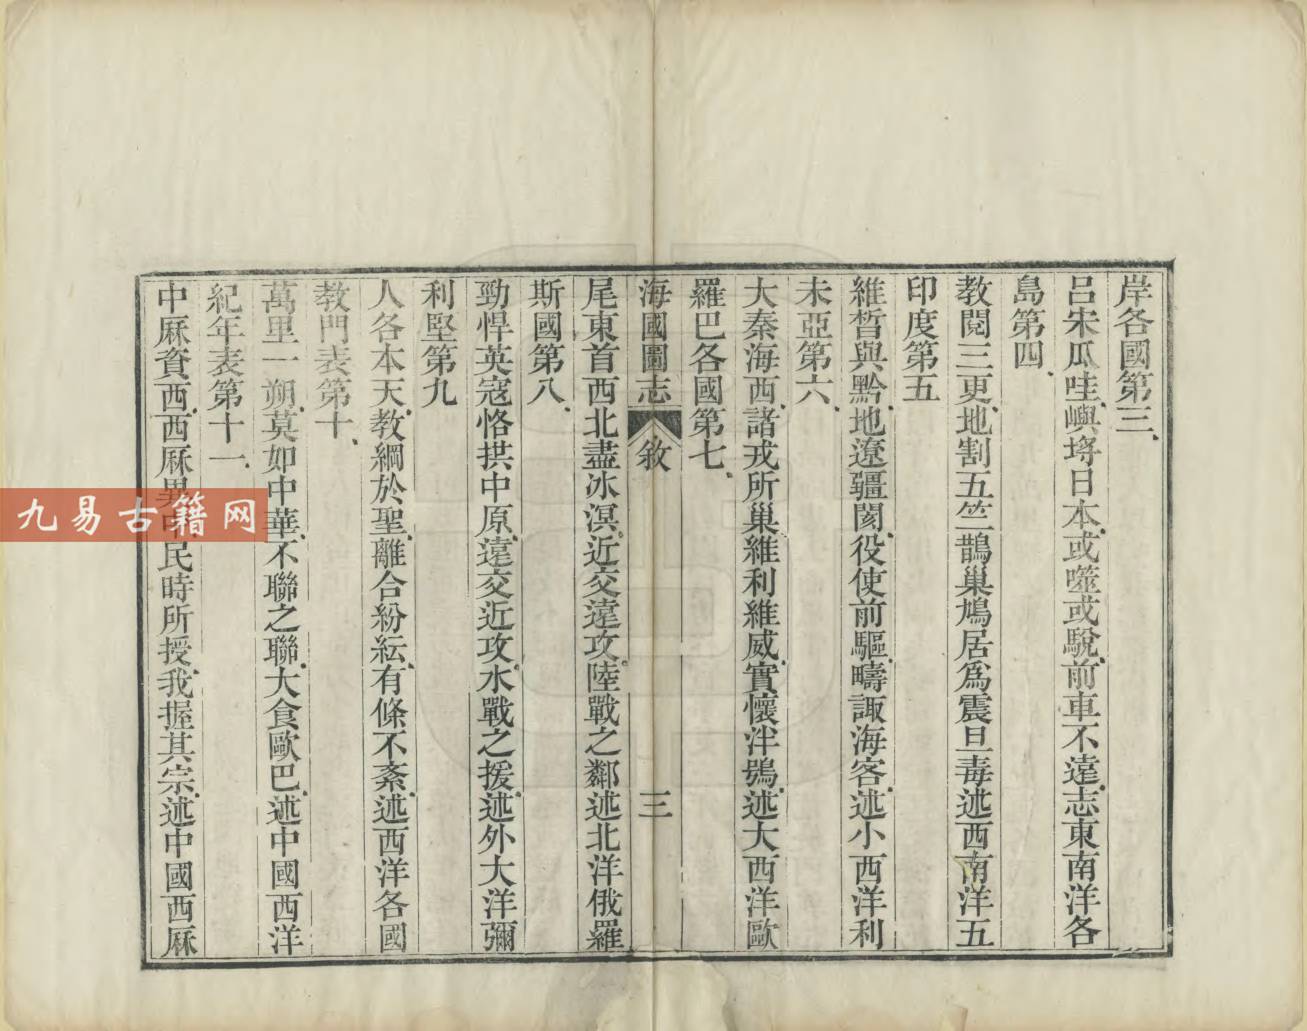 岸各國第三
呂宋瓜哇嶼埒日本或噬或駾前車不遠志東南洋各
島第四
教閱三更地割五竺鵲巢鳩居爲震旦毒述西南洋五
印度第五
維晳與黔地遼疆閡役使前驅疇諏海客述小西洋利
未亞第六
大秦海西諸戎所巢維利維威實懷泮鴞述大西洋歐
羅巴各國第七
海國圖志 敘 三
尾東首西北盡冰溟近交遠攻陸戰之鄰述北洋俄羅
斯國第八
勁悍英寇恪拱中原遠交近攻水戰之援述外大洋彌
利堅第九
人各本天教綱於聖離合紛紜有條不紊述西洋各國
教門表第十
萬里一朔莫如中華不聯之聯大食歐巴述中國西洋
紀年表第十一
中厤資西西厤異中民時所授我握其宗述中國西厤
九易古籍网